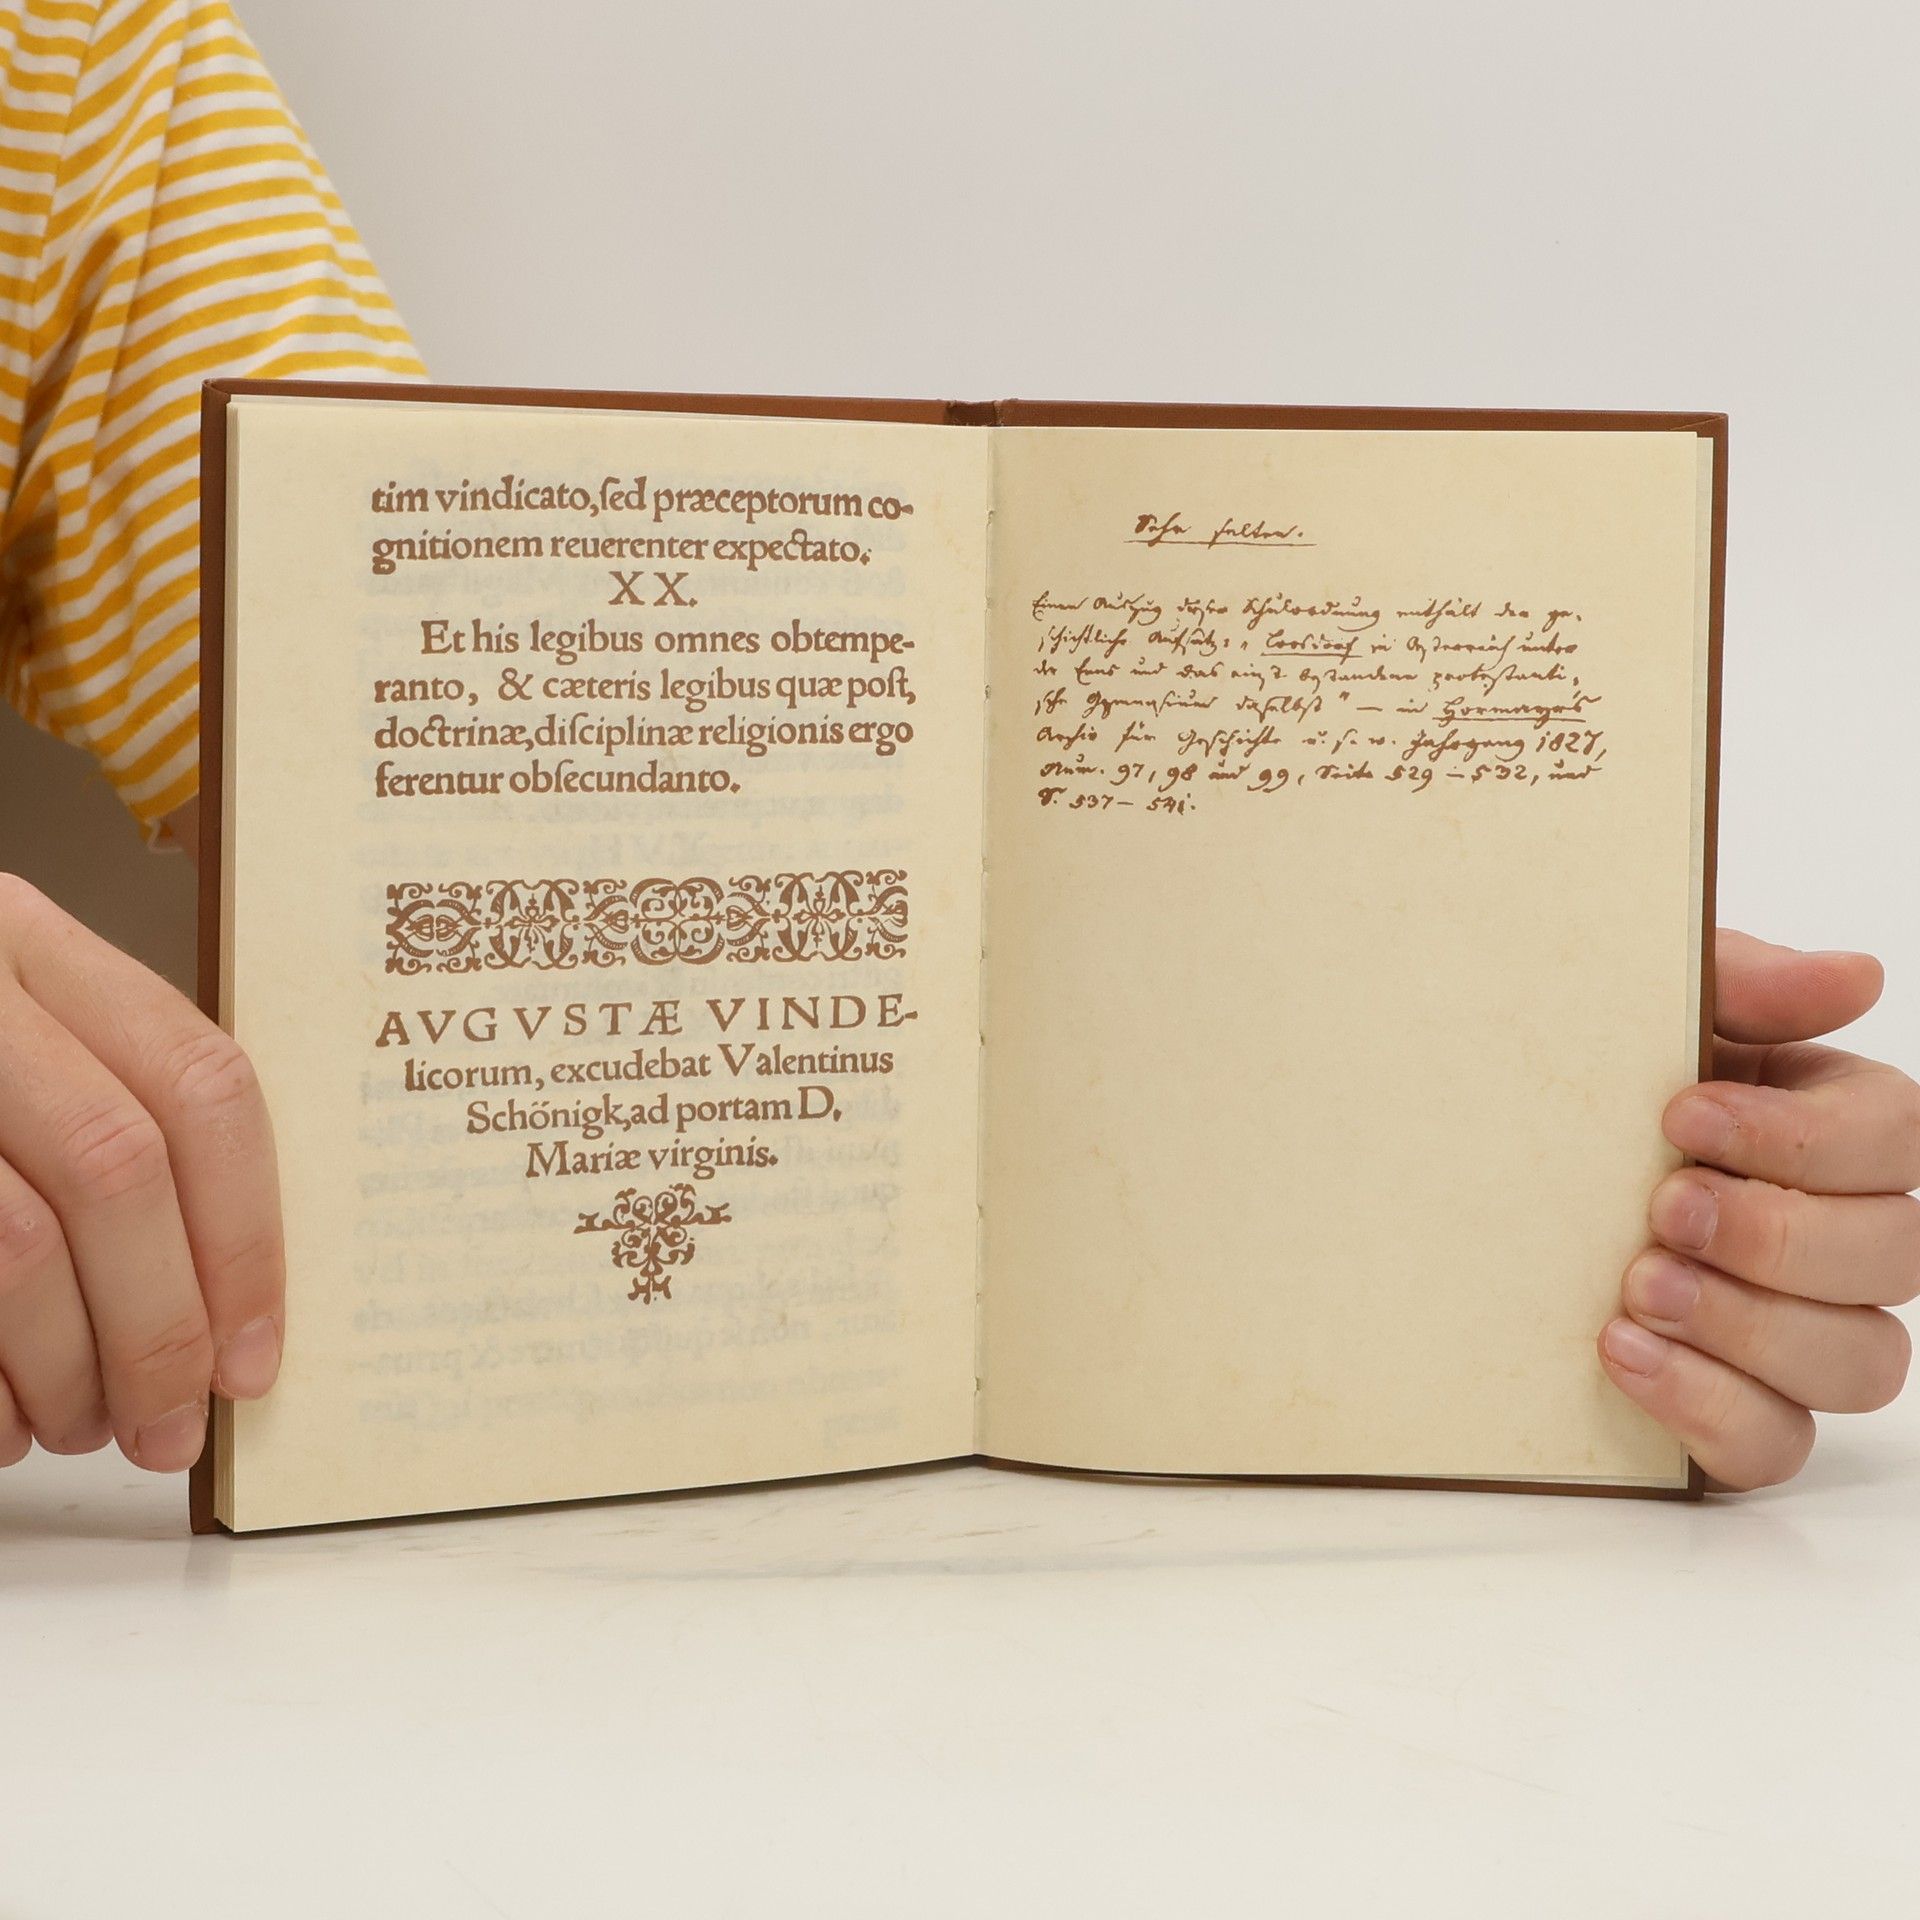 tim vindicato,ſed præceptorum co-
gnitionem reuerenter expectato.
XX.
Et his legibus omnes obtempe-
ranto, & cæteris legibus quæ poſt,
doctrinæ,diſciplinæ religionis ergo
ferentur obſecundanto.
AVGVSTÆ VINDE-
licorum, excudebat Valentinus
Schönigk,ad portam D.
Mariæ virginis.
Sehr selten.
Einen Auszug dieser Schulordnung enthält der ge-
schichtliche Aufsatz: „Loosdorf in Österreich unter
der Enns und das einst bestandene protestanti-
sche Gymnasium daselbst" — in Hormayr's
Archiv für Geschichte u. s. w. Jahrgang 1827,
Num. 97, 98 und 99, Seite 529 — 532, und
S. 537 — 541.